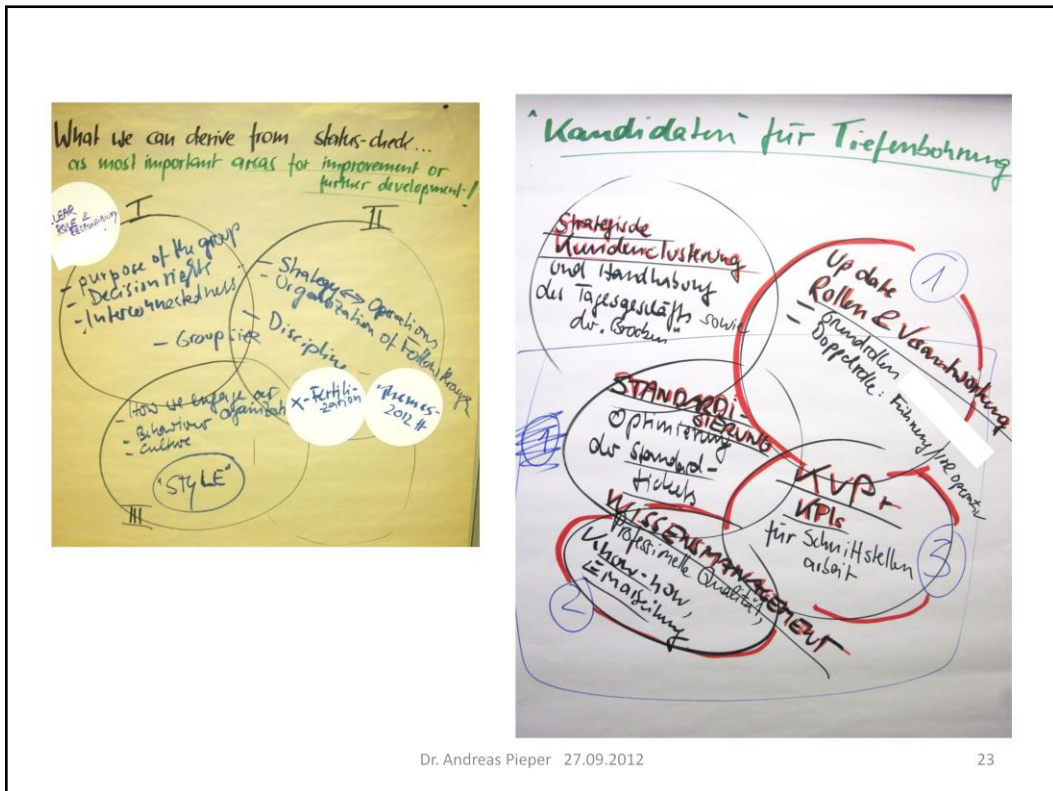 What we can derive from status-check...
as most important areas for improvement or
further development!
I
II
ROLE &
- purpose of the group
- Decision rights
- Interconnectedness
- Group size
- Strategy <-> Operations
- Organization of Follow through
- Discipline
- How we engage our
organization
- Behaviour
- Culture
"STYLE"
III
X-Fertili-
zation
"Themes-
2012 ff
"Kandidaten" für Tiefenbohrung
Strategische
Kundenclusterung
und Handhabung
des Tagesgeschäfts sowie
der "Brocken"
1
Update
Rollen & Verantwortung
- Grundrollen
- Doppelrolle: Führung/
STANDARDI-
SIERUNG
Optimierung
der Standard-
tickets
KVP+
KPIs
für Schnittstellen
arbeit
3
WISSENSMANAGEMENT
professionelle Qualität,
Know-how,
Einarbeitung
2
Dr. Andreas Pieper 27.09.2012
23